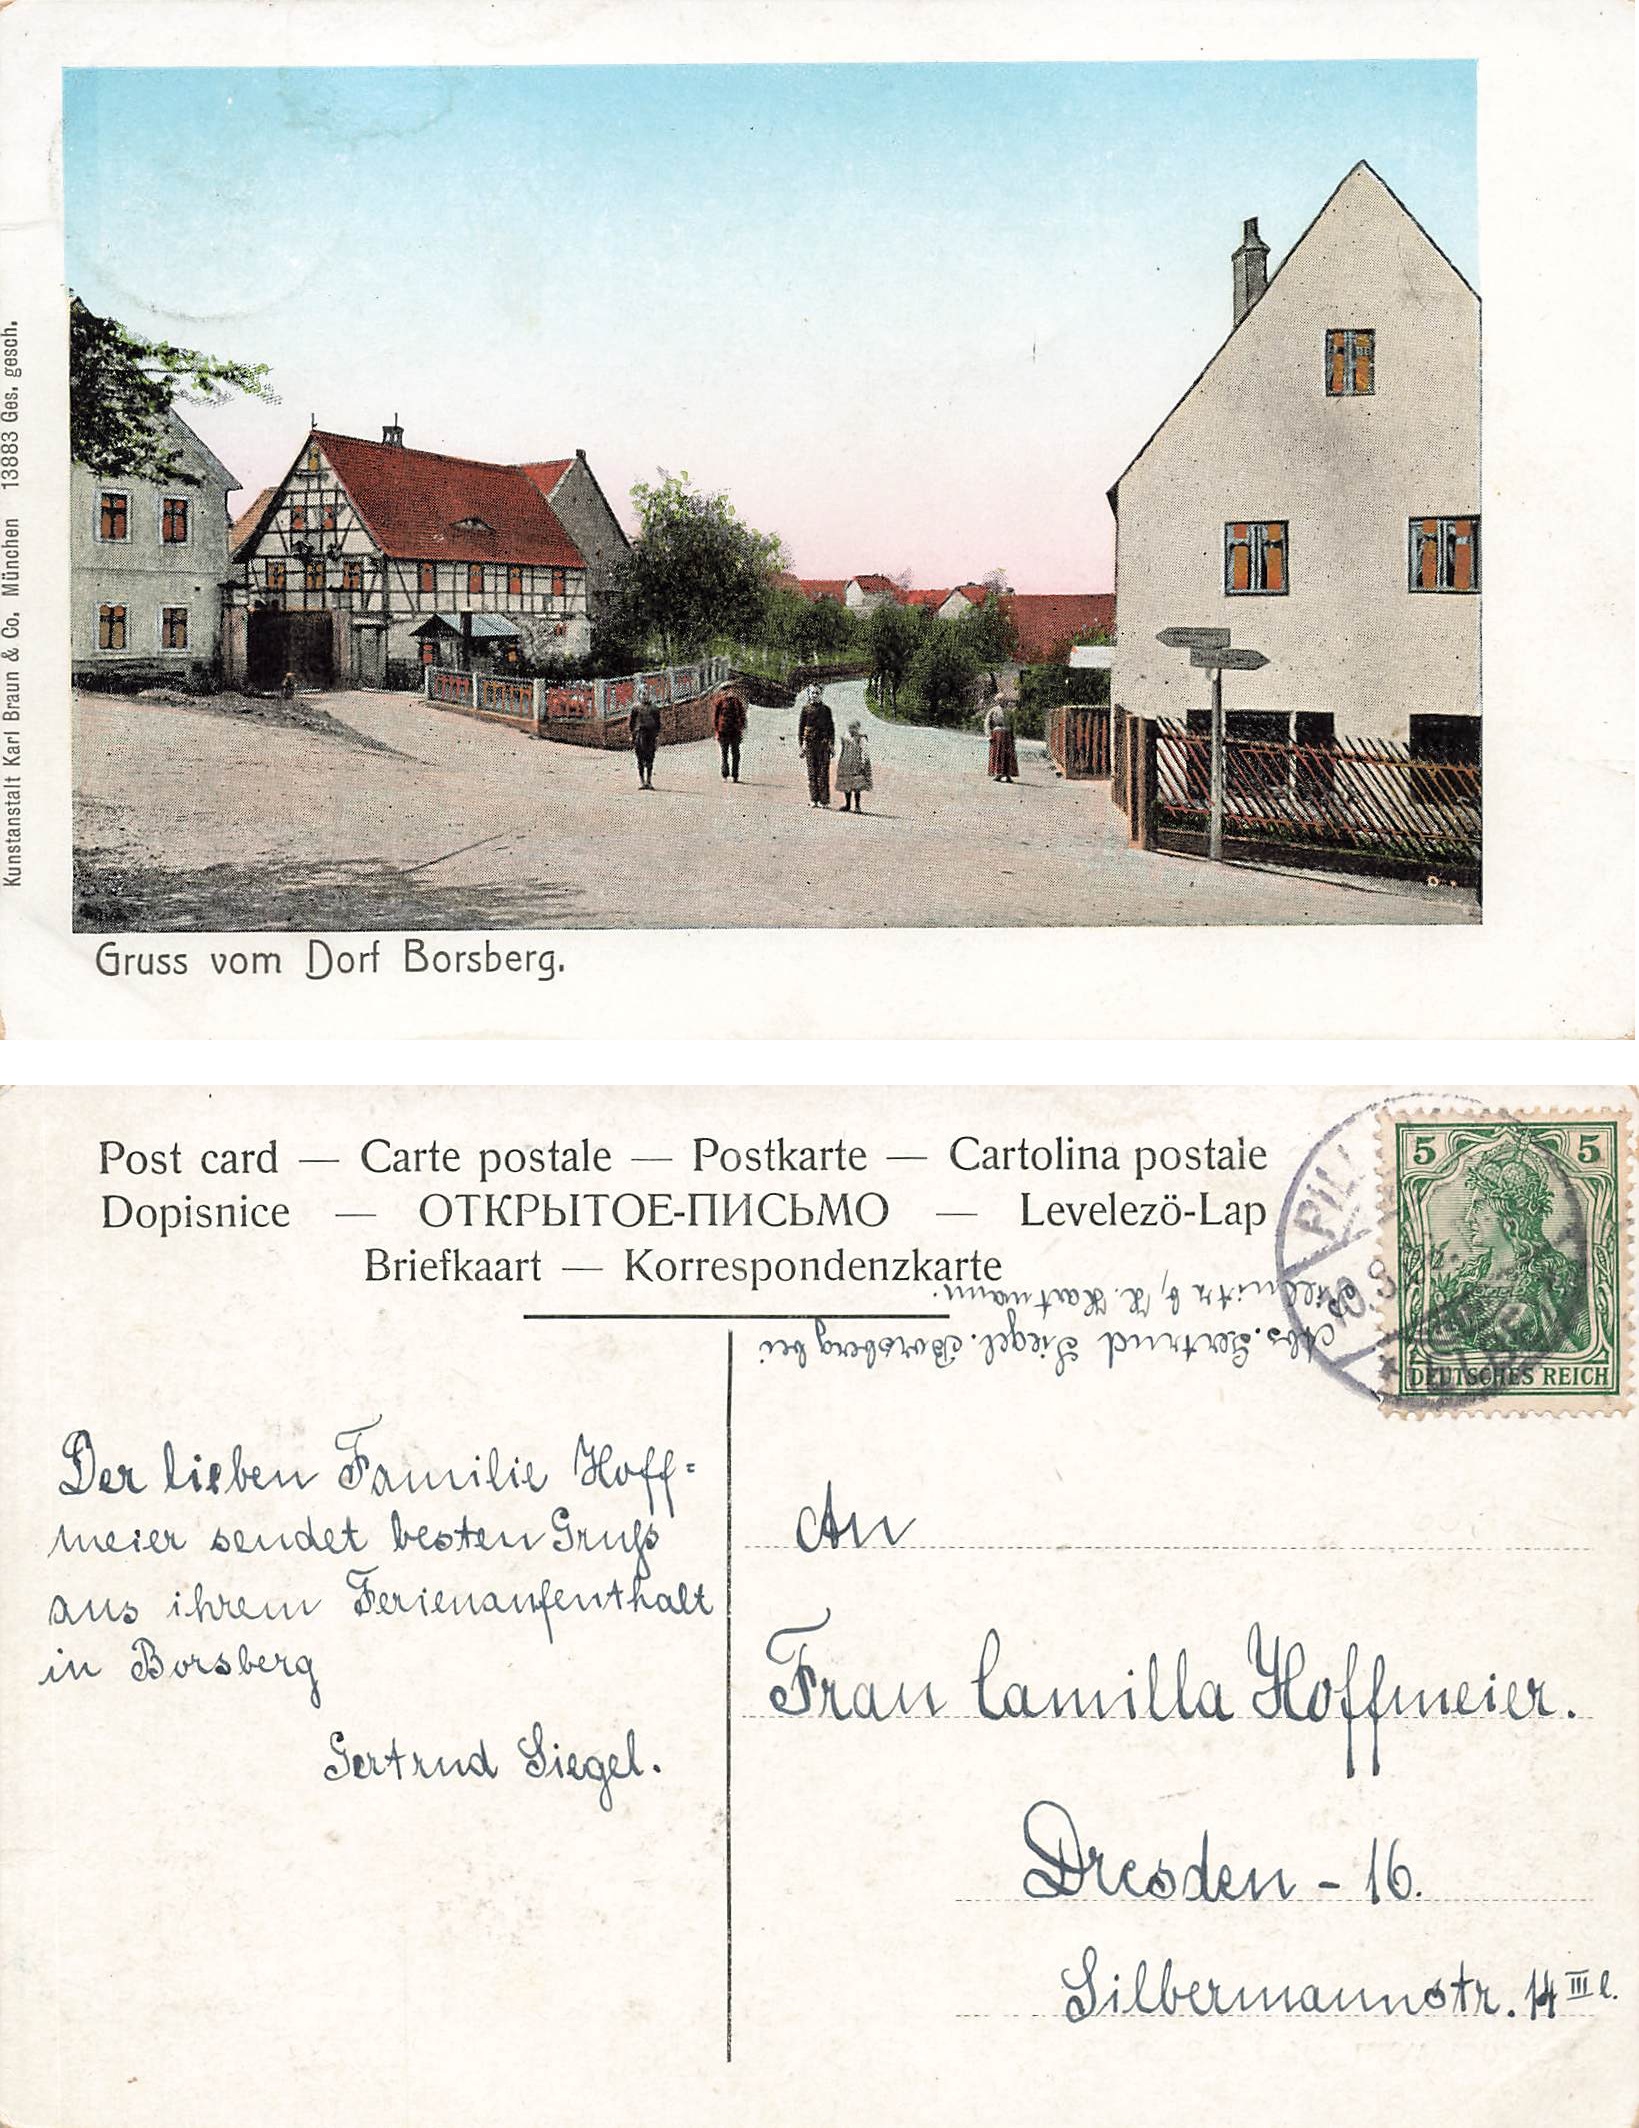 Kunstanstalt Karl Braun & Co. München 13883 Ges. gesch.
Gruss vom Dorf Borsberg.
Post card — Carte postale — Postkarte — Cartolina postale
Dopisnice — ОТКРЫТОЕ-ПИСЬМО — Levelezö-Lap
Briefkaart — Korrespondenzkarte
5 5
DEUTSCHES REICH
Abs. Gertrud Siegel. Borsberg bei
Pillnitz b, H. Hartmann.
Der lieben Familie Hoff=
meier sendet besten Gruß
aus ihrem Ferienaufenthalt
in Borsberg
Gertrud Siegel.
An
Frau Camilla Hoffmeier.
Dresden - 16.
Silbermannstr. 14 III l.